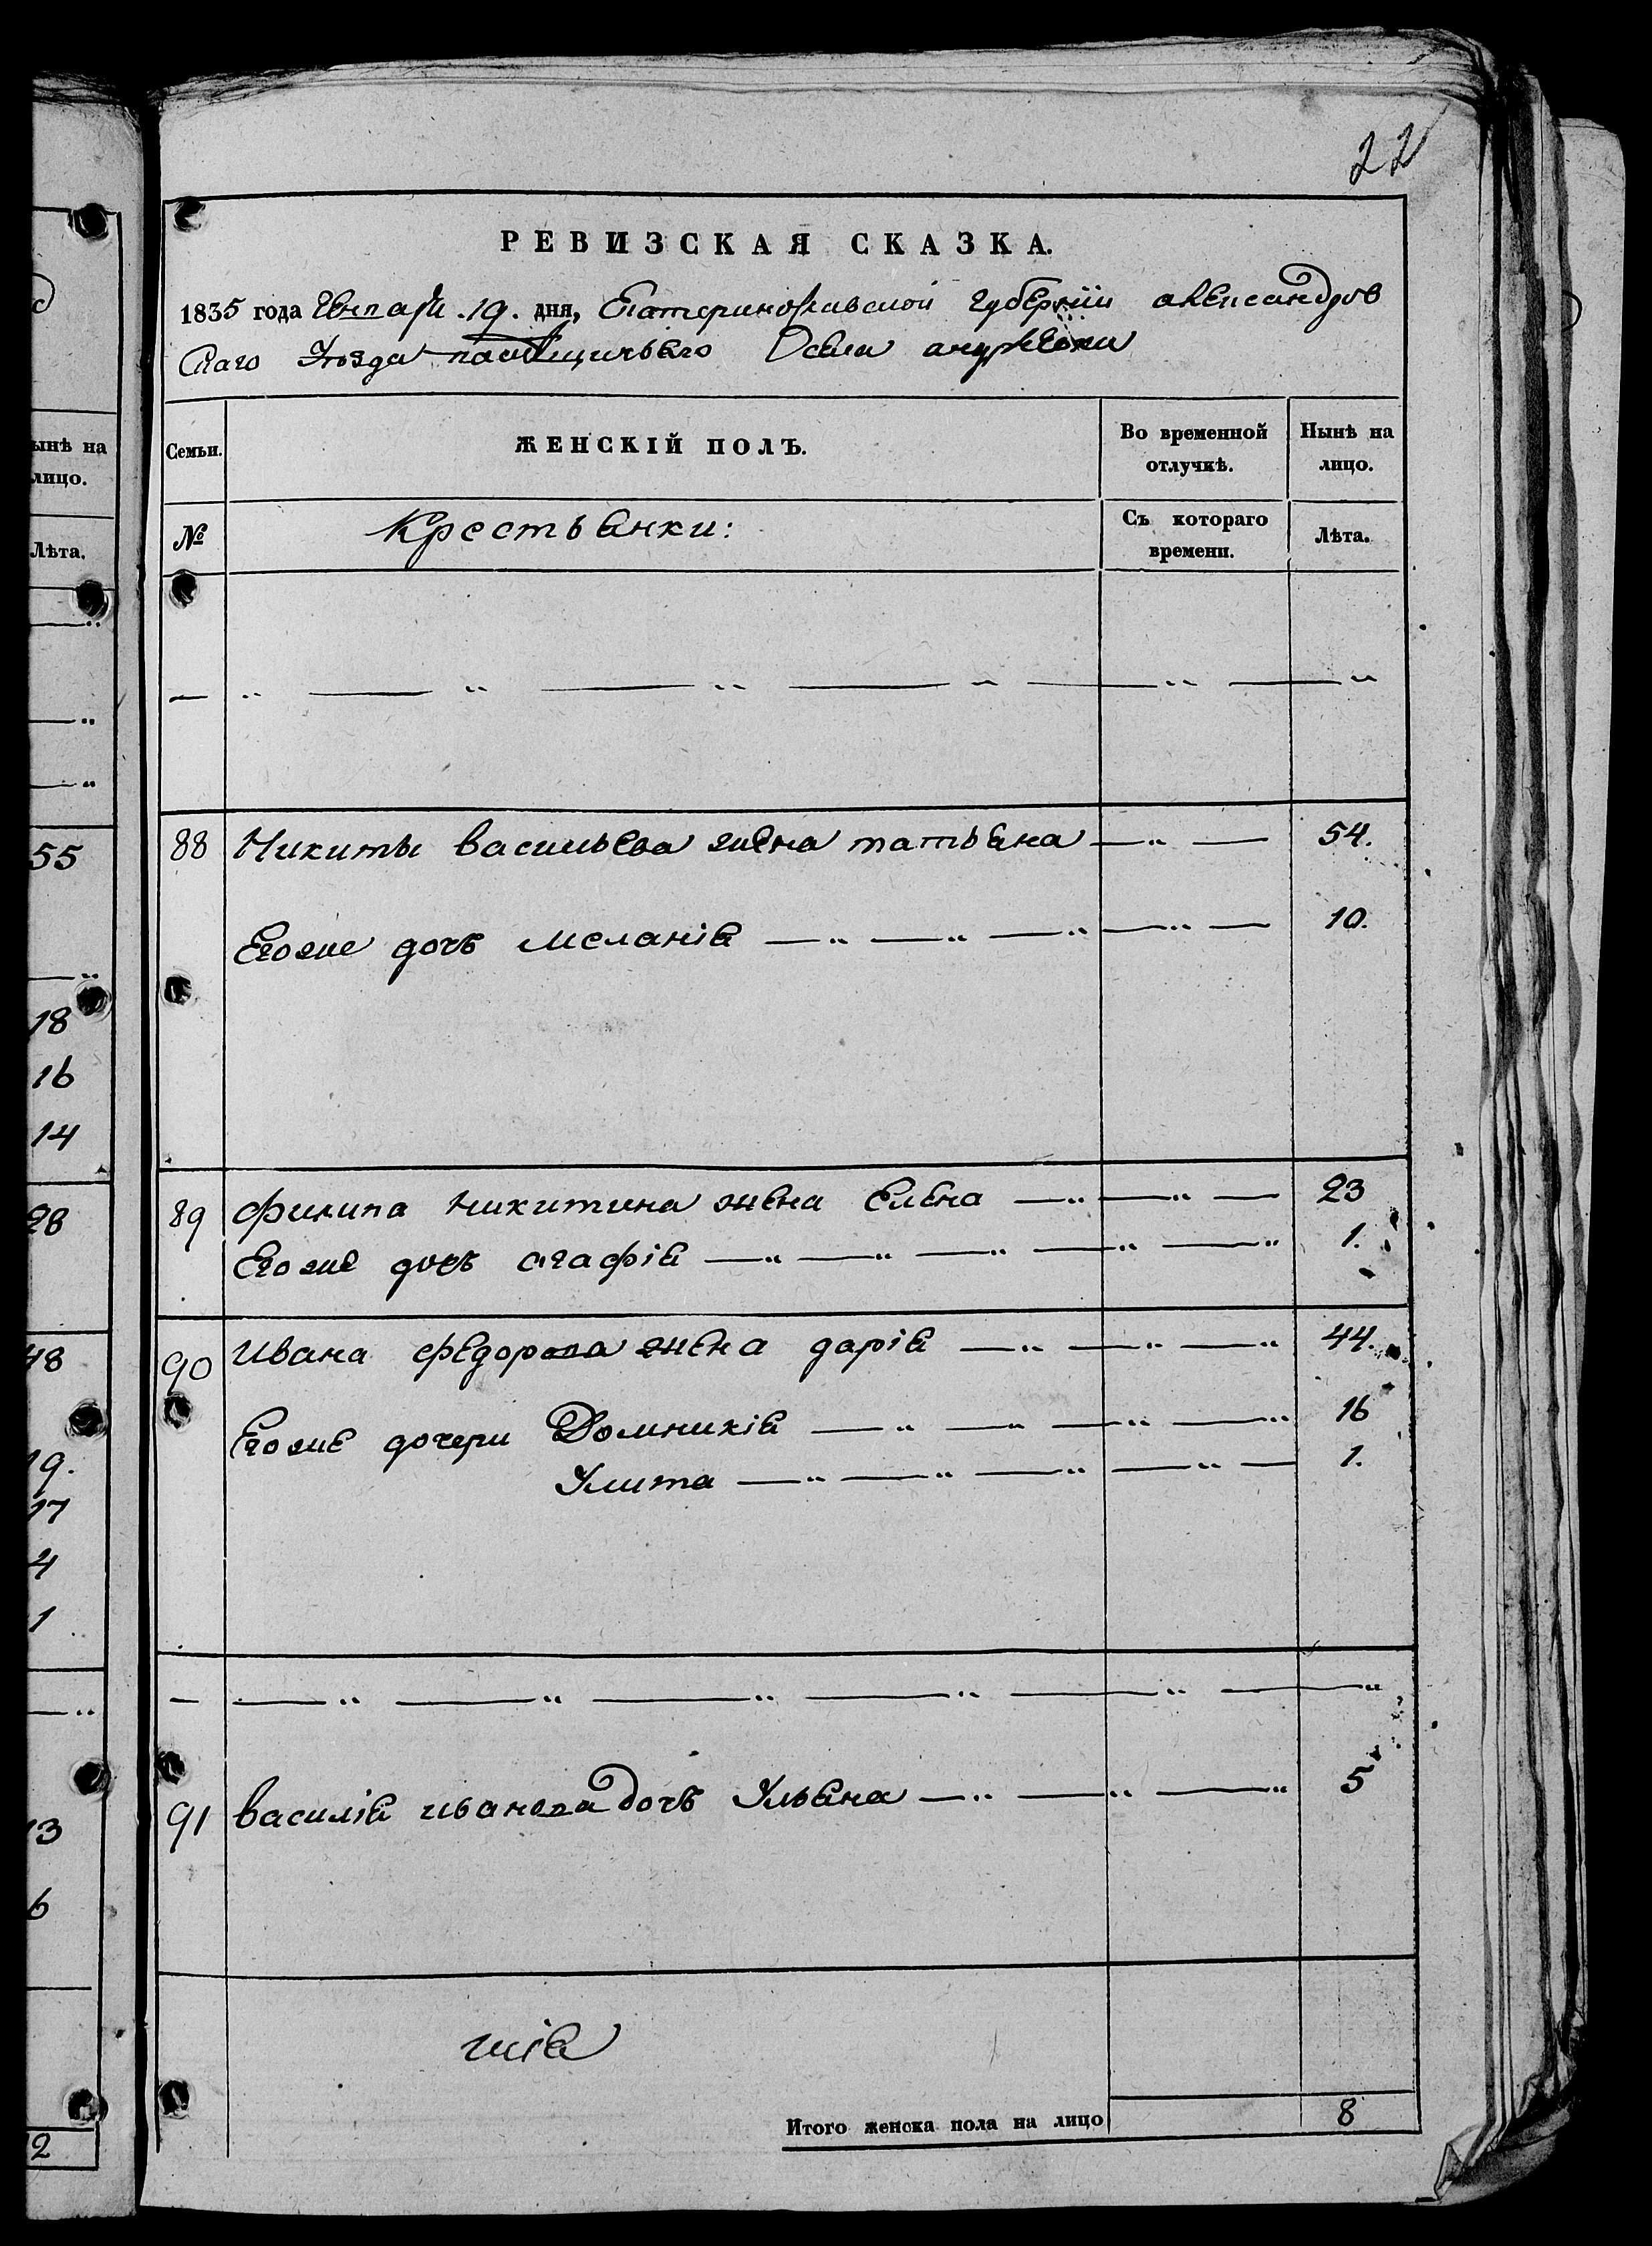 22
РЕВИЗСКАЯ СКАЗКА.
1835 года Генваря 19. дня, Екатеринославской губернии александров
скаго Уезда помещичьяго села андреевки
Семьи. ЖЕНСКІЙ ПОЛЪ. Во временной отлучкѣ. Нынѣ на лицо.
№ Крестьянки: Съ котораго времени. Лѣта.
88 Никиты васильева жена татьяна 54.
Егоже дочь меланія 10.
89 Филипа никитина жена Елена 23
Егоже дочь агафія 1.
90 Ивана федорова жена дарія 44.
Егоже дочери Домникія 16
Улита 1.
91 василія иванова дочь Ульяна 5
Итого женска пола на лицо 8
ынѣ на
лицо.
Лѣта.
55
18
16
14
28
48
19.
17
4
1
13
6
2